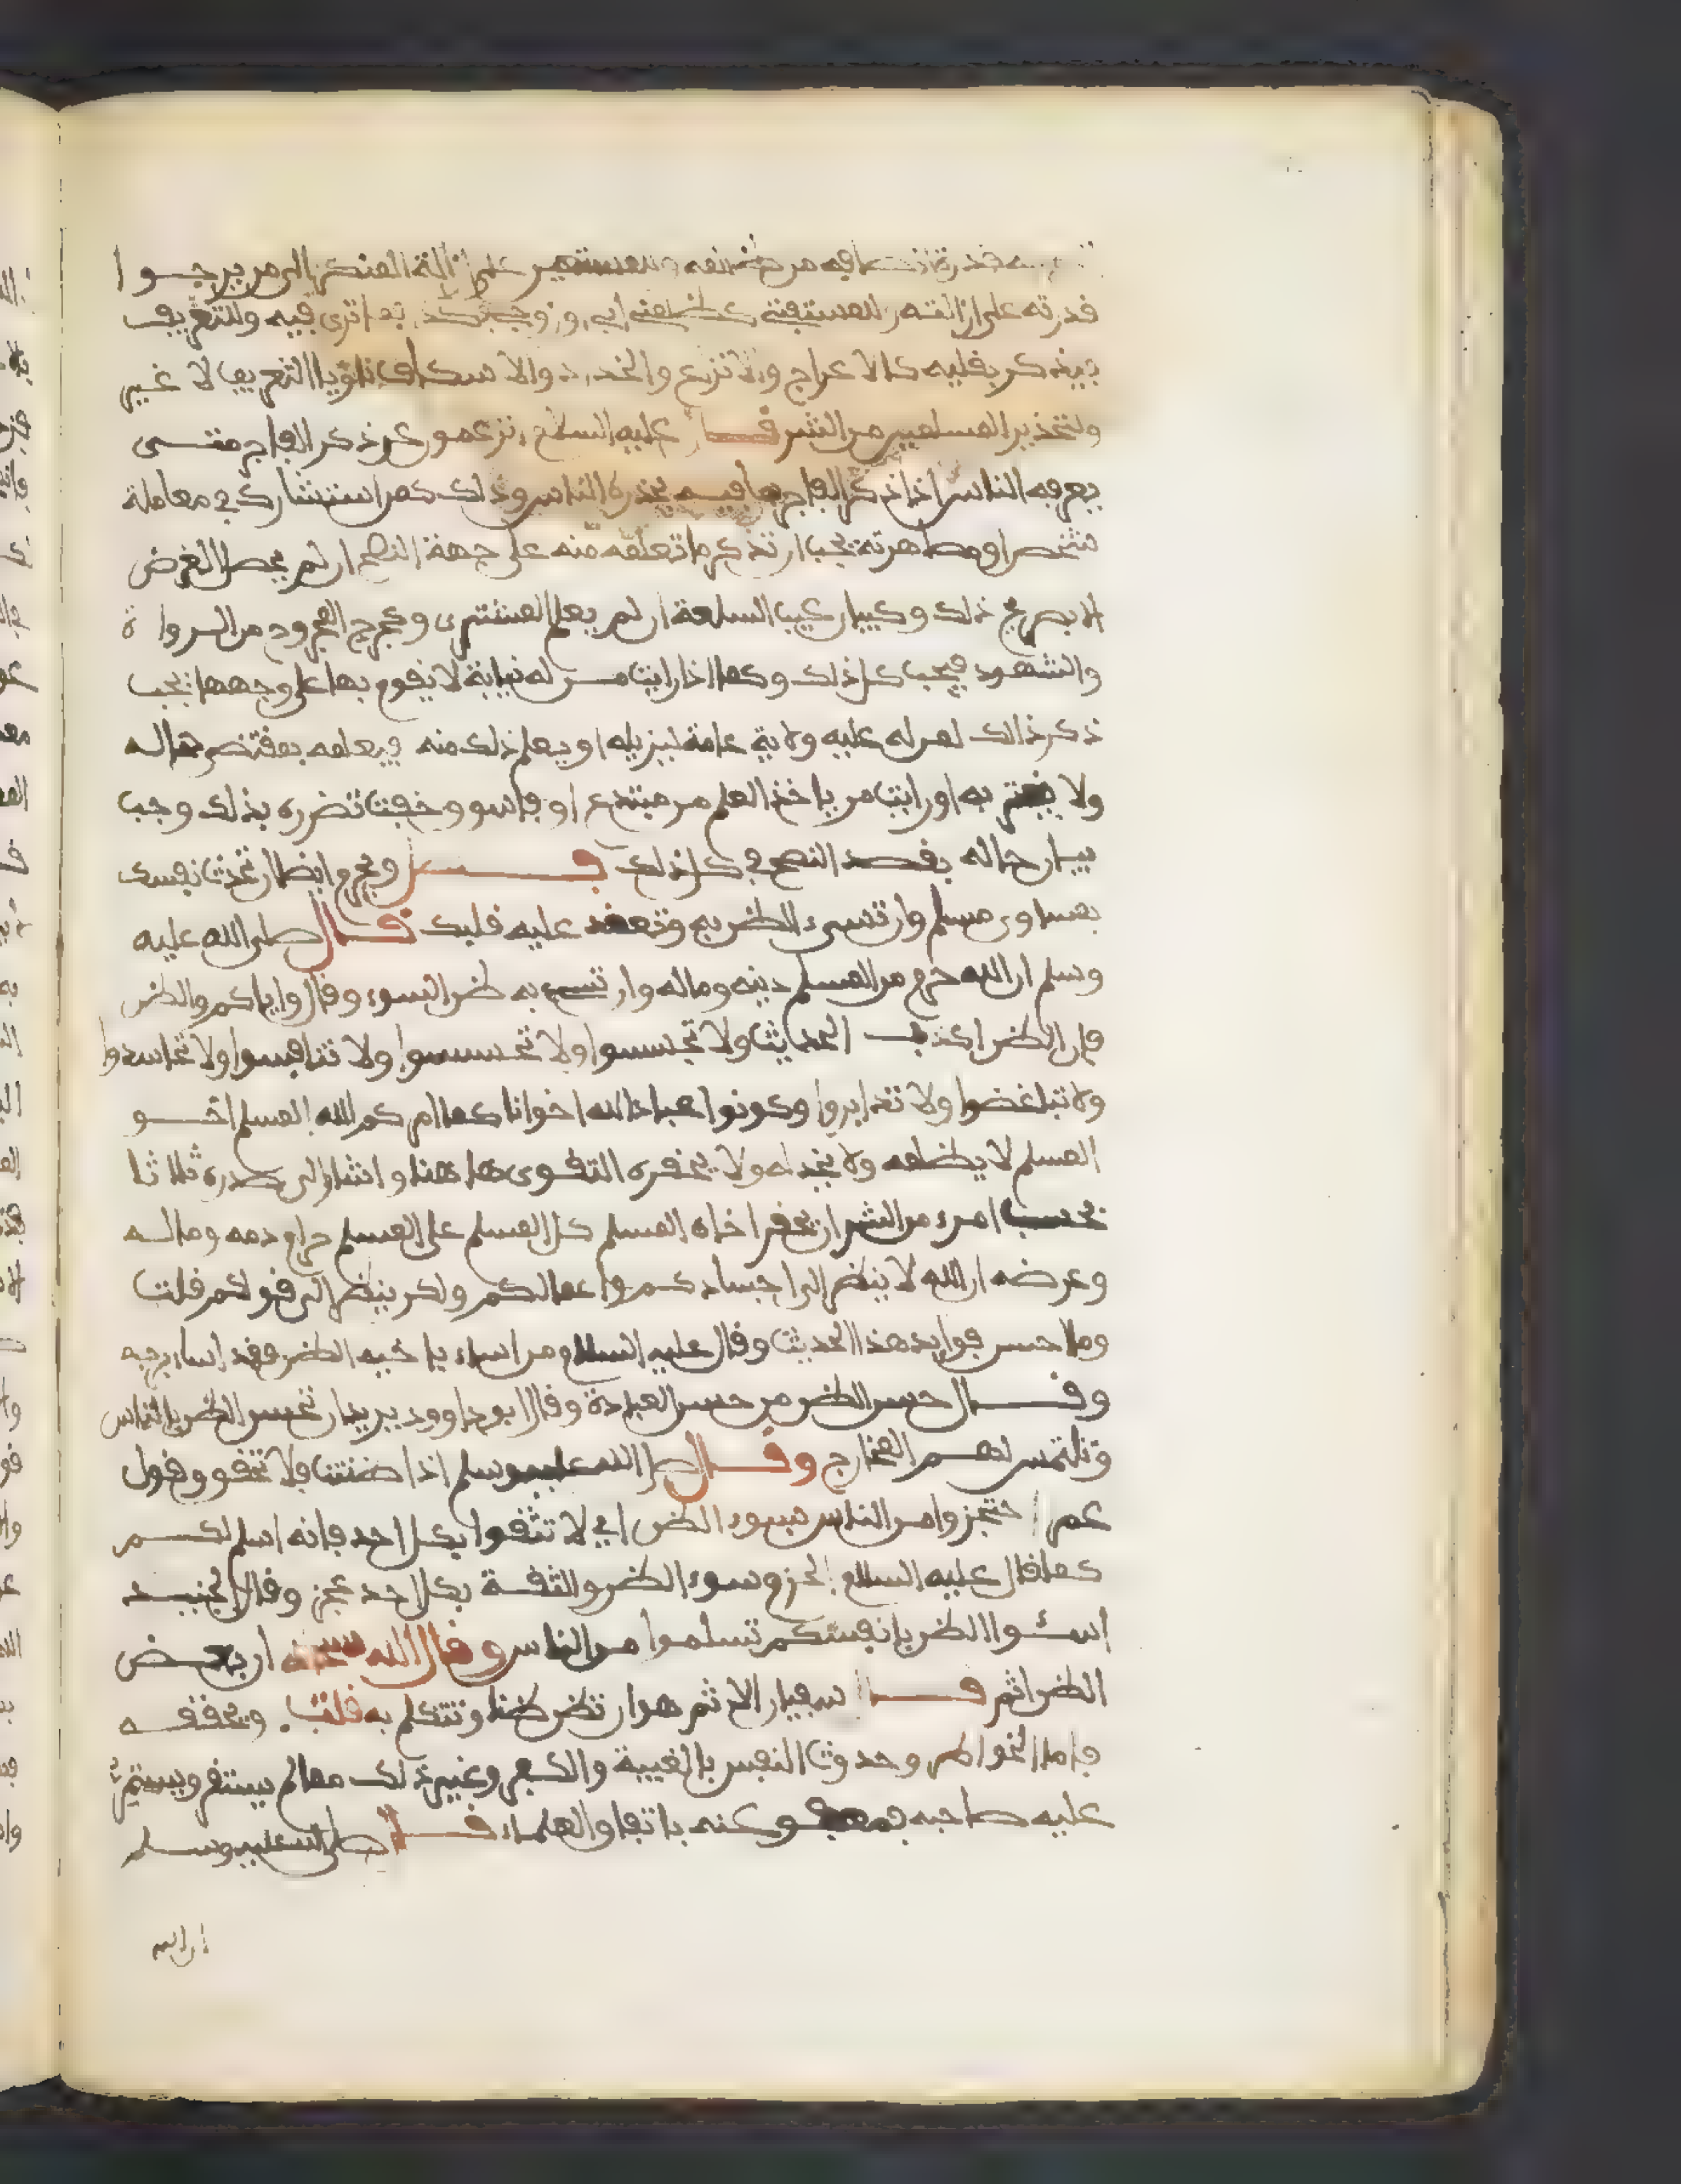 قدرة انصافه من ظلمه وللمستعين على ازالة المنكر الى من يرجوا
قدرته على ازالته وللمستفتى ظلمنى ابى وزوجى بكذا بما ترى فيه وللتعريف
بيذكر بلقبه كالاعرج والاقرع والاسكاف ناويا التعريف لا غير
ولتحذير المسلمين من الشر قال عليه السلام اتزعمون عن ذكر الفاجر متى
يعرفه الناس اذا ذكر الفاجر بما فيه يحذره الناس وذلك كمن استشارك في معاملة
شخص او مصاهرته يجب ان تذكر ما تعلمه منه على جهة النصح ان لم يحصل الغرض
الا بصريح ذلك وكبيان عيب السلعة ان لم يعلم المشترى وكجرح المجروح من الرواة
والشهود فيجب كل ذلك وكما اذا رايت من له نيابة لا يقوم بها على وجهها يجب
ذكر ذالك لمن له عليه ولاية عامة ليزيله او يعلم ذلك منه فيعامله بمقتضى حاله
ولا يغتر به او رايت من ياخذ العلم من مبتدع او فاسق وخفت تضرره بذلك وجب
بيان حاله بقصد النصح في كل ذلك فصل ويحرم ايضا ان تحدث نفسك
بمساوى مسلم وان تسىء الظن به وتعقد عليه قلبك قال صلى الله عليه
وسلم ان الله حرم من المسلم دينه وماله وان تسىء به ظن السوء وقال واياكم والظن
فان الظن اكذب الحديث ولا تجسسوا ولا تحسسوا ولا تنافسوا ولا تحاسدوا
ولا تباغضوا ولا تدابروا وكونوا عباد الله اخوانا كما امركم الله المسلم اخو
المسلم لا يظلمه ولا يخذله ولا يحقره التقوى ها هنا واشار الى صدره ثلاثا
بحسب امرء من الشر ان يحقر اخاه المسلم كل المسلم على المسلم حرام دمه وماله
وعرضه ان الله لا ينظر الى اجسادكم واعمالكم ولكن ينظر الى قلوبكم قلت
وما احسن فوايد هذا الحديث وقال عليه السلام من اساء باخيه الظن فقد اساء بربه
وقال حسن الظن من حسن العبادة وقال ابو داوود يريد ان تحسن الظن بالناس
وتلتمس لهم المخارج وقال صلى الله عليه وسلم اذا ظننت فلا تحقق وقول
عمر احتجزوا من الناس بسوء الظن اي لا تثقوا بكل احد فانه اسلم لكم
كما قال عليه السلام الحزم سوء الظن والثقة بكل احد عجز وقال الجنيد
اسئوا الظن بانفسكم تسلموا من الناس وقال الله سبحانه ان بعض
الظن اثم قال سفيان الاثم هو ان تظن ظنا وتتكلم به قلت وتحققه
فاما الخواطر وحدوث النفس بالغيبة والكفر وغير ذلك مما لم يستقر ويستمر
عليه صاحبه فمعفو عنه باتفاق العلماء قال صلى الله عليه وسلم
ان الله